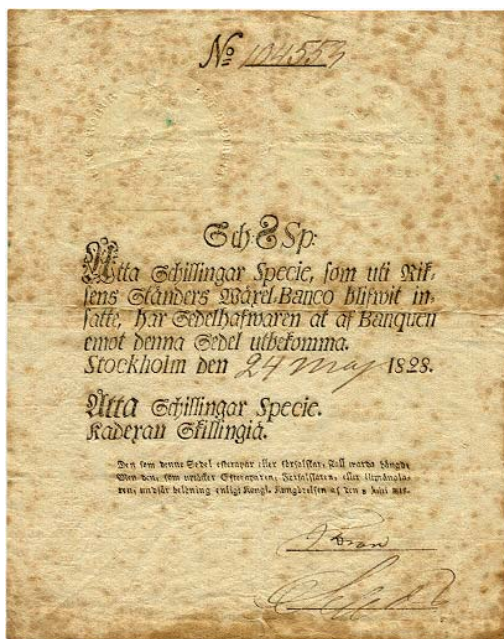 No 104553
Sch: 8 Sp:
Åtta Schillingar Specie, som uti Rik-
sens Ständers Wäxel-Banco blifwit in-
satte, har Sedelhafwaren at af Banquen
emot denna Sedel utbekomma.
Stockholm den 24 Maj 1828.
Åtta Schillingar Specie.
Kadexan Skillingiä.
Den som denne Sedel efterapar eller förfalskar, skall warda hängd;
Men den, som uptäcker Efteraparen, Förfalskaren, eller
belöning enligt Kongl. Kungörelsen af den